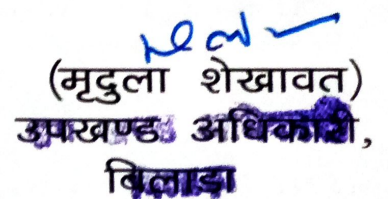 (मृदुला शेखावत)
उपखण्ड अधिकारी,
बिलाड़ा